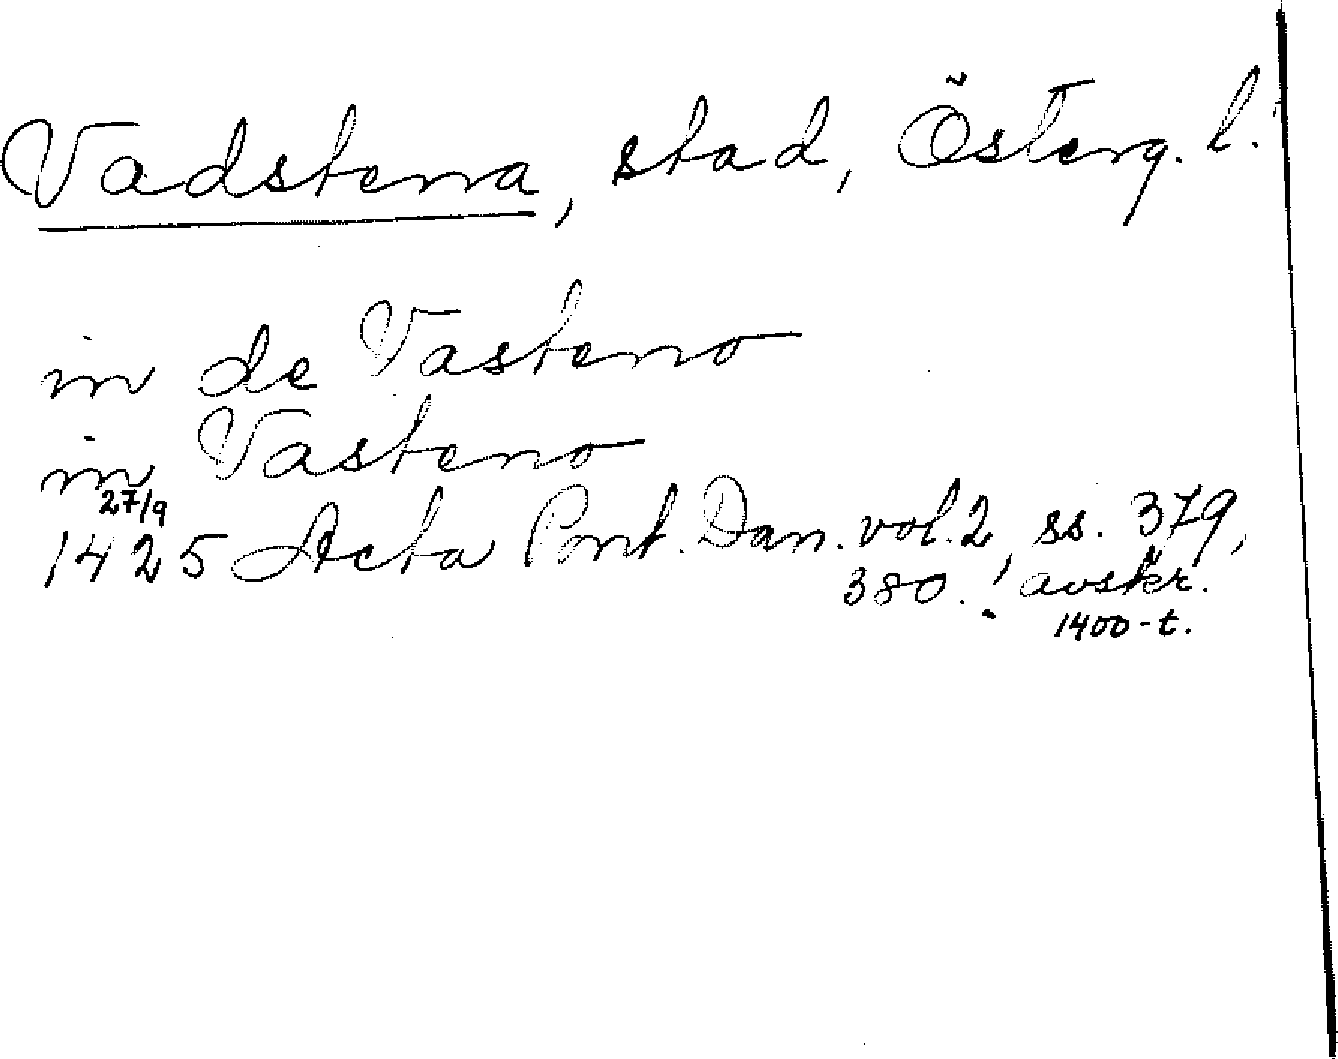 Vadstena, stad, Österg. l.
in de Vasteno
in Vasteno
27/9
1425 Acta Pont. Dan. vol. 2, ss. 379,
380. ; avskr.
1400-t.